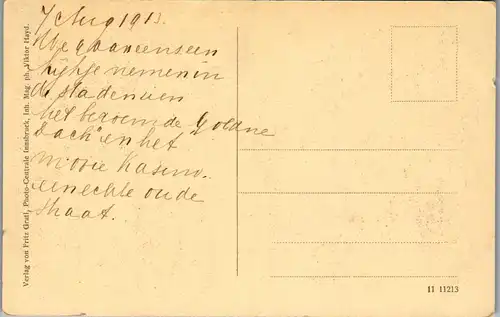 7 Aug 1913.
We gaan eenseen
kijkje nemen in
de stad en sien
het beroemde "Goldne
Dach" en het
mooie Kasino.
een echte oude
straat.
Verlag von Fritz Gratl, Photo-Centrale Innsbruck, Inh. Mag. ph. Viktor Hayd.
11 11213